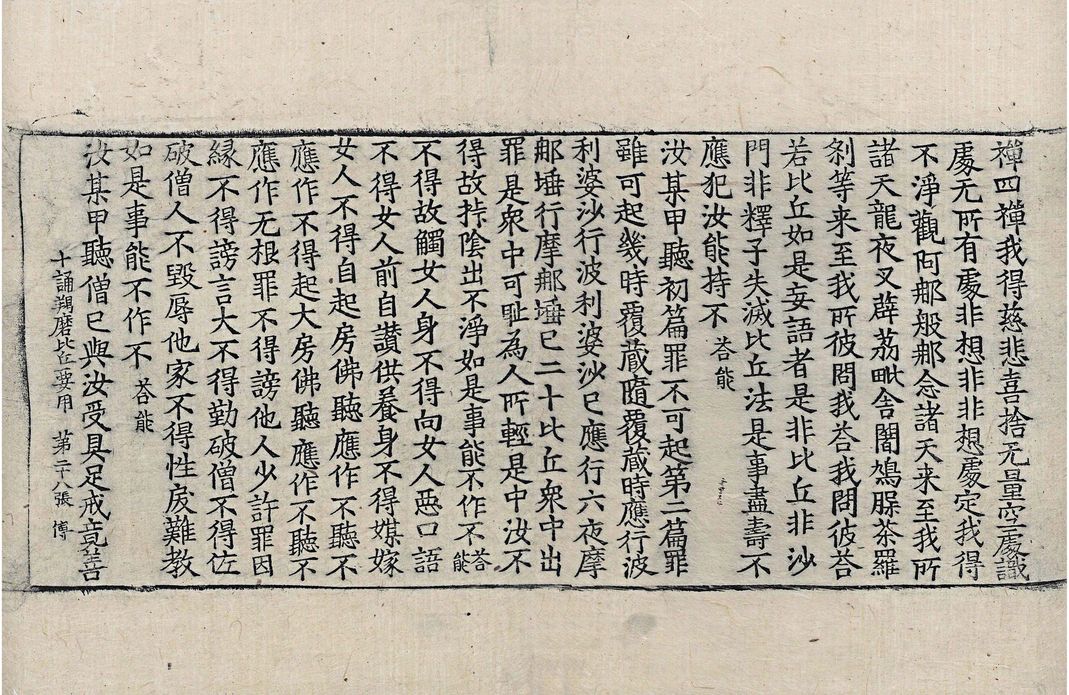 禪四禪我得慈悲喜捨无量空處識
處无所有處非想非非想處定我得
不淨觀阿那般那念諸天来至我所
諸天龍夜叉薜荔毗舍闍鳩䏽茶羅
剎等来至我所彼問我荅我問彼荅
若比丘如是妄語者是非比丘非沙
門非釋子失滅比丘法是事盡壽不
應犯汝能持不 荅能
汝某甲聽初篇罪不可起第二篇罪
雖可起幾時覆藏隨覆藏時應行波
利婆沙行波利婆沙已應行六夜摩
那埵行摩那埵已二十比丘衆中出
罪是衆中可恥為人所輕是中汝不
得故㨄陰出不淨如是事能不作不 荅能
不得故觸女人身不得向女人惡口語
不得女人前自讚供養身不得媒嫁
女人不得自起房佛聽應作不聽不
應作不得起大房佛聽應作不聽不
應作无根罪不得謗他人少許罪因
緣不得謗言大不得勤破僧不得佐
破僧人不毀辱他家不得性戾難教
如是事能不作不 荅能
汝某甲聽僧已與汝受具足戒竟善
十誦羯磨比丘要用 第二八張 傅